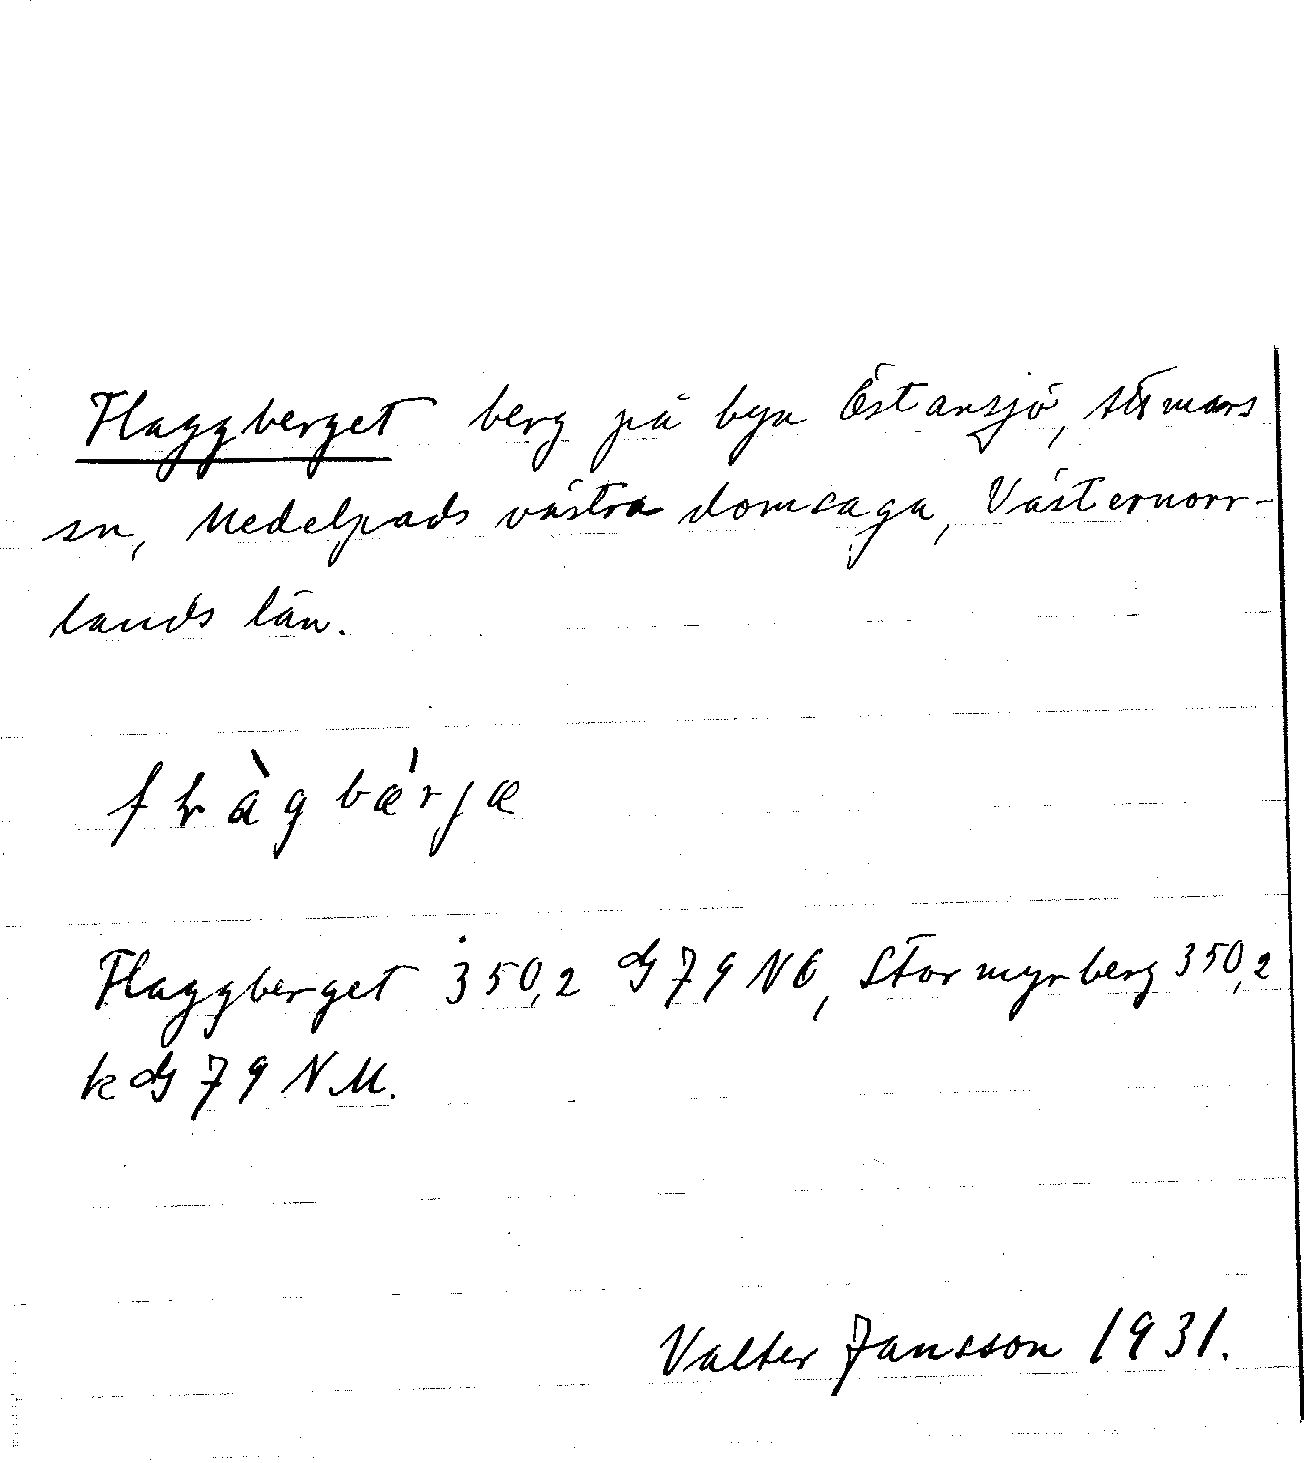 Flaggberget berg på byn Östansjö,
sn, Medelpads västra domsaga, Västernorr-
lands län.
Flaggberget 350,2 G 79 NÖ, Stormyrberg 350,2
k G 79 NM.
Valter Jansson 1931.